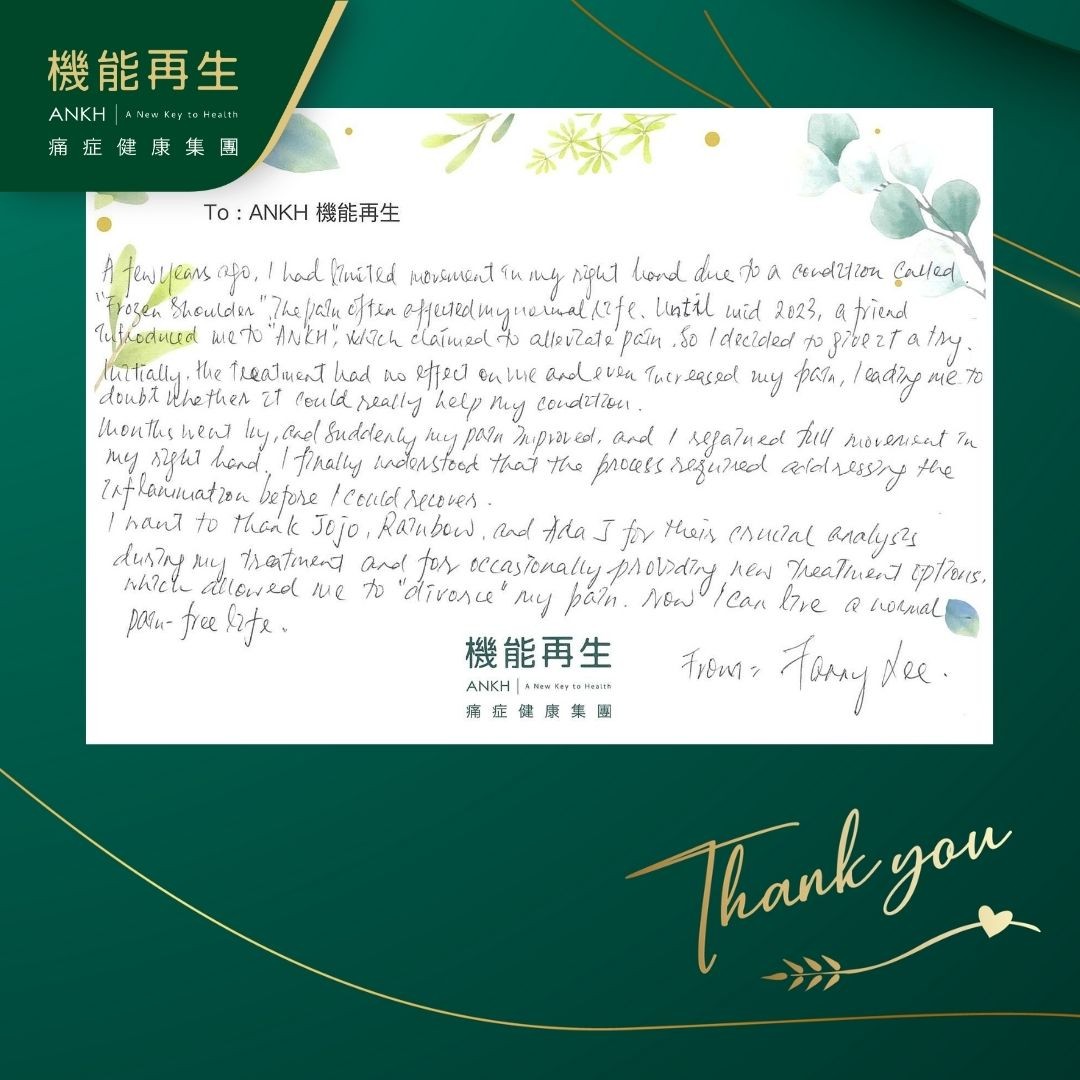 機能再生
ANKH | A New Key to Health
痛症健康集團
To : ANKH 機能再生
A few years ago, I had limited movement in my right hand due to a condition called
"Frozen Shoulder". The pain often affected my normal life. Until mid 2023, a friend
introduced me to "ANKH", which claimed to alleviate pain. So I decided to give it a try.
Initially, the treatment had no effect on me and even increased my pain, leading me to
doubt whether it could really help my condition.
Months went by, and suddenly my pain improved, and I regained full movement in
my right hand. I finally understood that the process required addressing the
inflammation before I could recover.
I want to thank Jojo, Rainbow, and Ada J for their crucial analysis
during my treatment and for occasionally providing new treatment options,
which allowed me to "divorce" my pain. Now I can live a normal
pain-free life.
機能再生
ANKH | A New Key to Health
痛症健康集團
From: Fanny Lee.
Thank you